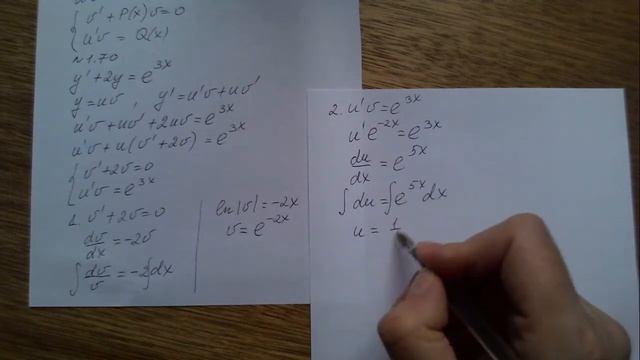 { v' + P(x)v = 0
{ u'v = Q(x)
N 1.70
y' + 2y = e^{3x}
y = uv, y' = u'v + uv'
u'v + uv' + 2uv = e^{3x}
u'v + u(v' + 2v) = e^{3x}
{ v' + 2v = 0
{ u'v = e^{3x}
1. v' + 2v = 0
dv/dx = -2v
∫ dv/v = -2∫dx
ln|v| = -2x
v = e^{-2x}
2. u'v = e^{3x}
u'e^{-2x} = e^{3x}
du/dx = e^{5x}
∫ du = ∫ e^{5x} dx
u = 1